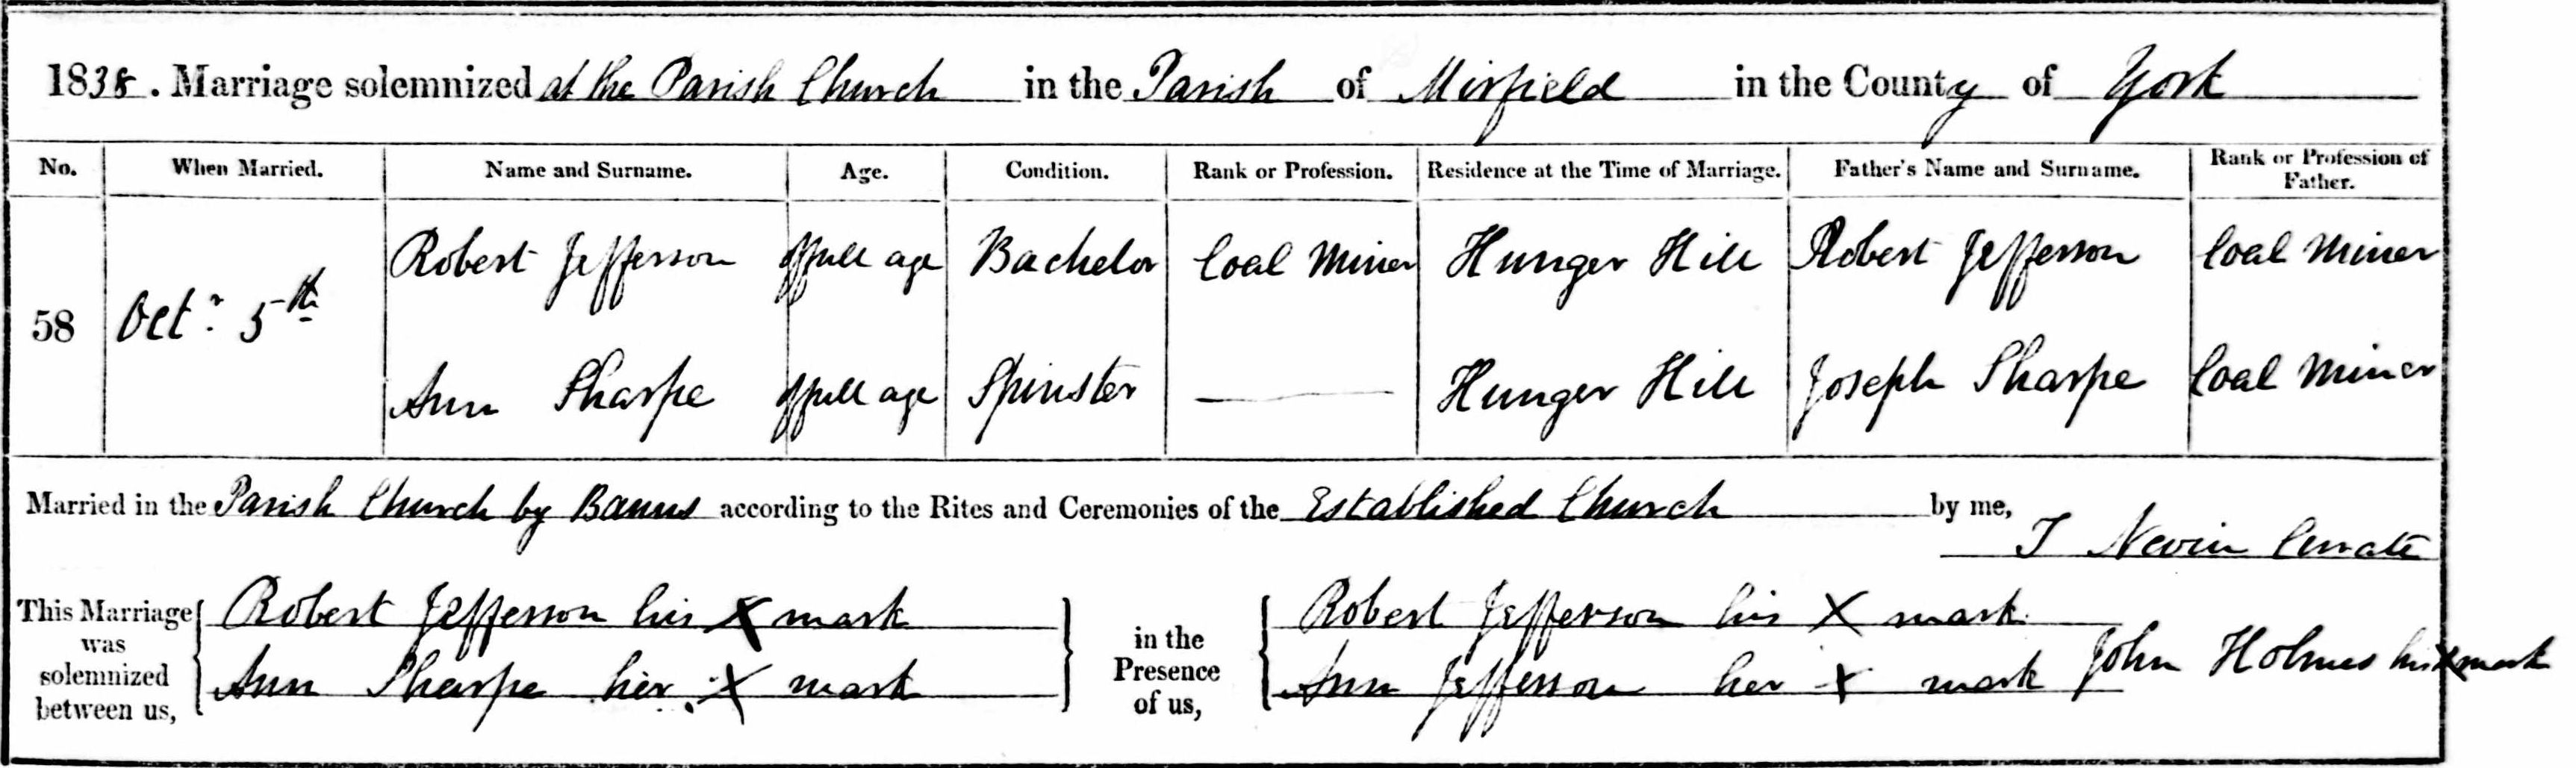 1838. Marriage solemnized at the Parish Church in the Parish of Mirfield in the County of York
No. When Married. Name and Surname. Age. Condition. Rank or Profession. Residence at the Time of Marriage. Father's Name and Surname. Rank or Profession of Father.
Robert Jefferson of full age Bachelor Coal Miner Hunger Hill Robert Jefferson Coal Miner
58 Octr. 5th
Ann Sharpe of full age Spinster — Hunger Hill Joseph Sharpe Coal Miner
Married in the Parish Church by Banns according to the Rites and Ceremonies of the Established Church by me,
T Nevin Curate
This Marriage was solemnized between us,
Robert Jefferson his X mark
Ann Sharpe her X mark
in the Presence of us,
Robert Jefferson his X mark
Ann Jefferson her X mark John Holmes his X mark